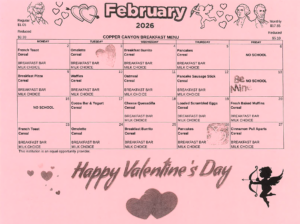 February
2026
COPPER CANYON BREAKFAST MENU
MONDAY TUESDAY WEDNESDAY THURSDAY FRIDAY
French Toast
Cereal
BREAKFAST BAR
MILK CHOICE
Omelette
Cereal
BREAKFAST BAR
MILK CHOICE
Breakfast Burrito
Cereal
BREAKFAST BAR
MILK CHOICE
Pancakes
Cereal
BREAKFAST BAR
MILK CHOICE
NO SCHOOL
Breakfast Pizza
Cereal
BREAKFAST BAR
MILK CHOICE
Waffles
Cereal
BREAKFAST BAR
MILK CHOICE
Cereal
BREAKFAST BAR
MILK CHOICE
Pancake Sausage Stick
Cereal
BREAKFAST BAR
MILK CHOICE
Be
Mine
NO SCHOOL
NO SCHOOL
Cocoa Bar & Yogurt
Cereal
BREAKFAST BAR
MILK CHOICE
Cheese Quesadilla
Cereal
BREAKFAST BAR
MILK CHOICE
Loaded Scrambled Eggs
Cereal
BREAKFAST BAR
MILK CHOICE
Fresh Baked Muffins
Cereal
BREAKFAST BAR
MILK CHOICE
French Toast
Cereal
BREAKFAST BAR
MILK CHOICE
Omelette
Cereal
BREAKFAST BAR
MILK CHOICE
Breakfast Burrito
Cereal
BREAKFAST BAR
MILK CHOICE
Pancakes
Cereal
BREAKFAST BAR
MILK CHOICE
Cinnamon Pull Aparts
Cereal
BREAKFAST BAR
MILK CHOICE
This institution is an equal opportunity provider.
Happy Valentine's Day